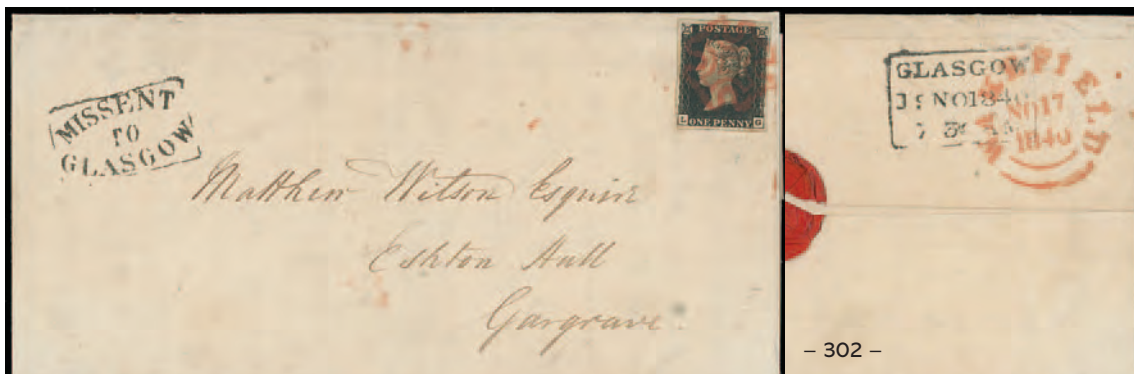 MISSENT
TO
GLASGOW
POSTAGE
L ONE PENNY G
Matthew Wilson Esquire
Eshton Hall
Gargrave.
GLASGOW
19 NO 1840
WAKEFIELD
NO 17
1840
– 302 –